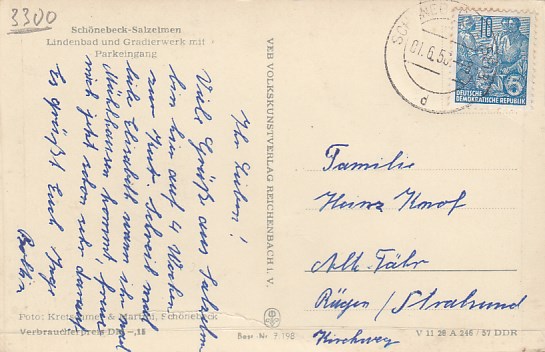 3300
Schönebeck-Salzelmen
Lindenbad und Gradierwerk mit
Parkeingang
Ihr Lieben!
Viele Grüße aus Salzelmen
bin hier auf 4 Wochen
zur Kur. Schreib mal
bitte Elisabeth wann ihr nach
Mühlhausen kommt, freue
mich jetzt schon sehr darauf
Es grüßt Euch Inge
Foto: Kretschmer & Martin, Schönebeck
Verbraucherpreis DM -,15
VEB VOLKSKUNSTVERLAG REICHENBACH i. V.
Best.-Nr. F 198
01.6.58
d
10
5
DEUTSCHE
DEMOKRATISCHE REPUBLIK
Familie
Heinz Knof
Alt. Fähr
Rügen / Stralsund
Kirchweg
V 11 28 A 246 / 57 DDR